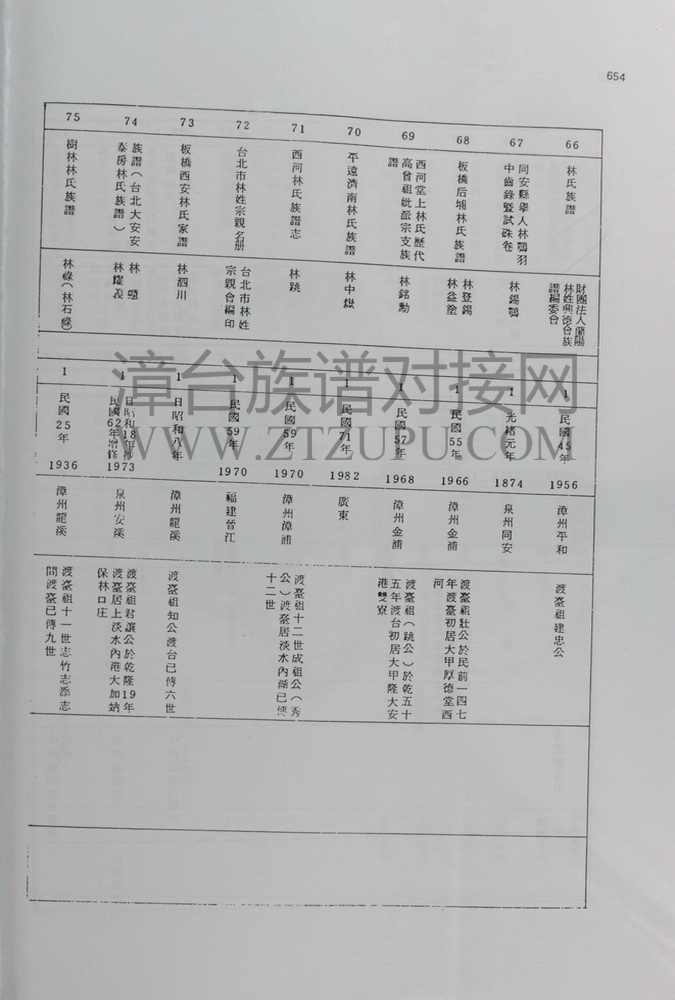 654
66
林氏族譜
財團法人蘭陽
林姓興德會族
譜編委會
1
民國45年
1956
漳州平和
渡臺祖建忠公
67
同安縣舉人林鶚羽
中齒錄暨試硃卷
林錫鶚
1
光緒元年
1874
泉州同安
68
板橋后埔林氏族譜
林登錫
林益塗
1
民國55年
1966
漳州金浦
渡臺祖壯公於民前一四七
年渡臺初居大甲厚德堂西
河
69
西河堂上林氏歷代
高曾祖妣蓋宗支族
譜
林銘勳
1
民國57年
1968
漳州金浦
渡臺祖(跳公)於乾五十
五年渡台初居大甲隆大安
港雙寮
70
平遠濟南林氏族譜
林中嶽
1
民國71年
1982
廣東
71
西河林氏族譜志
林跳
1
民國59年
1970
漳州漳浦
渡臺祖十二世成祖公(秀
公)渡臺居淡水內湖已傳
十二世
72
台北市林姓宗親名册
台北市林姓
宗親會編印
1
民國59年
1970
福建晉江
73
板橋西安林氏家譜
林泗川
1
日昭和八年
漳州龍溪
渡臺祖知公渡台已傳六世
74
族譜(台北大安安
泰房林氏族譜)
林
林燿義
1
日昭和18年
民國62年增修
1973
泉州安溪
渡臺祖君讓公於乾隆19年
渡臺居上淡水內港大加蚋
保林口庄
75
樹林林氏族譜
林祿(林石綠)
1
民國25年
1936
漳州龍溪
渡臺祖十一世志竹志添志
問渡臺已傳九世
漳台族谱对接网
WWW.ZTZUPU.COM